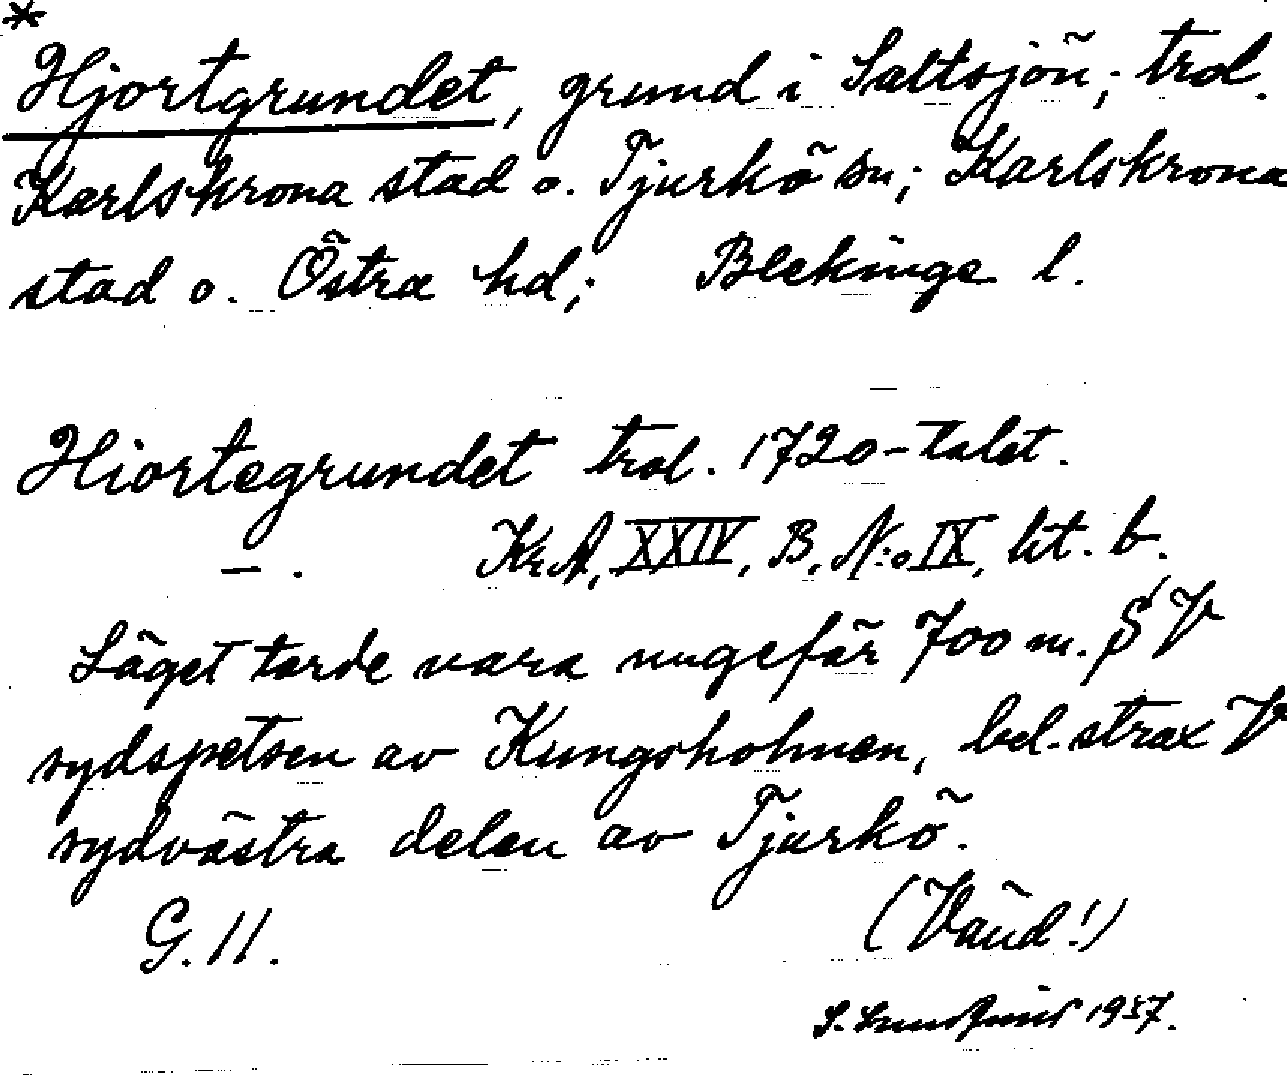 *
Hjortgrundet, grund i Saltsjön; trol.
Karlskrona stad o. Tjurkö sn; Karlskrona
stad o. Östra hd; Blekinge l.
Hiortegrundet trol. 1720-talet.
— . Kr.A, XXIV, B, N:o IX, lit. b.
Läget torde vara ungefär 700 m. S V
sydspetsen av Kungsholmen, bel. strax V
sydvästra delen av Tjurkö.
G. 11. (Vänd!)
S. 1937.